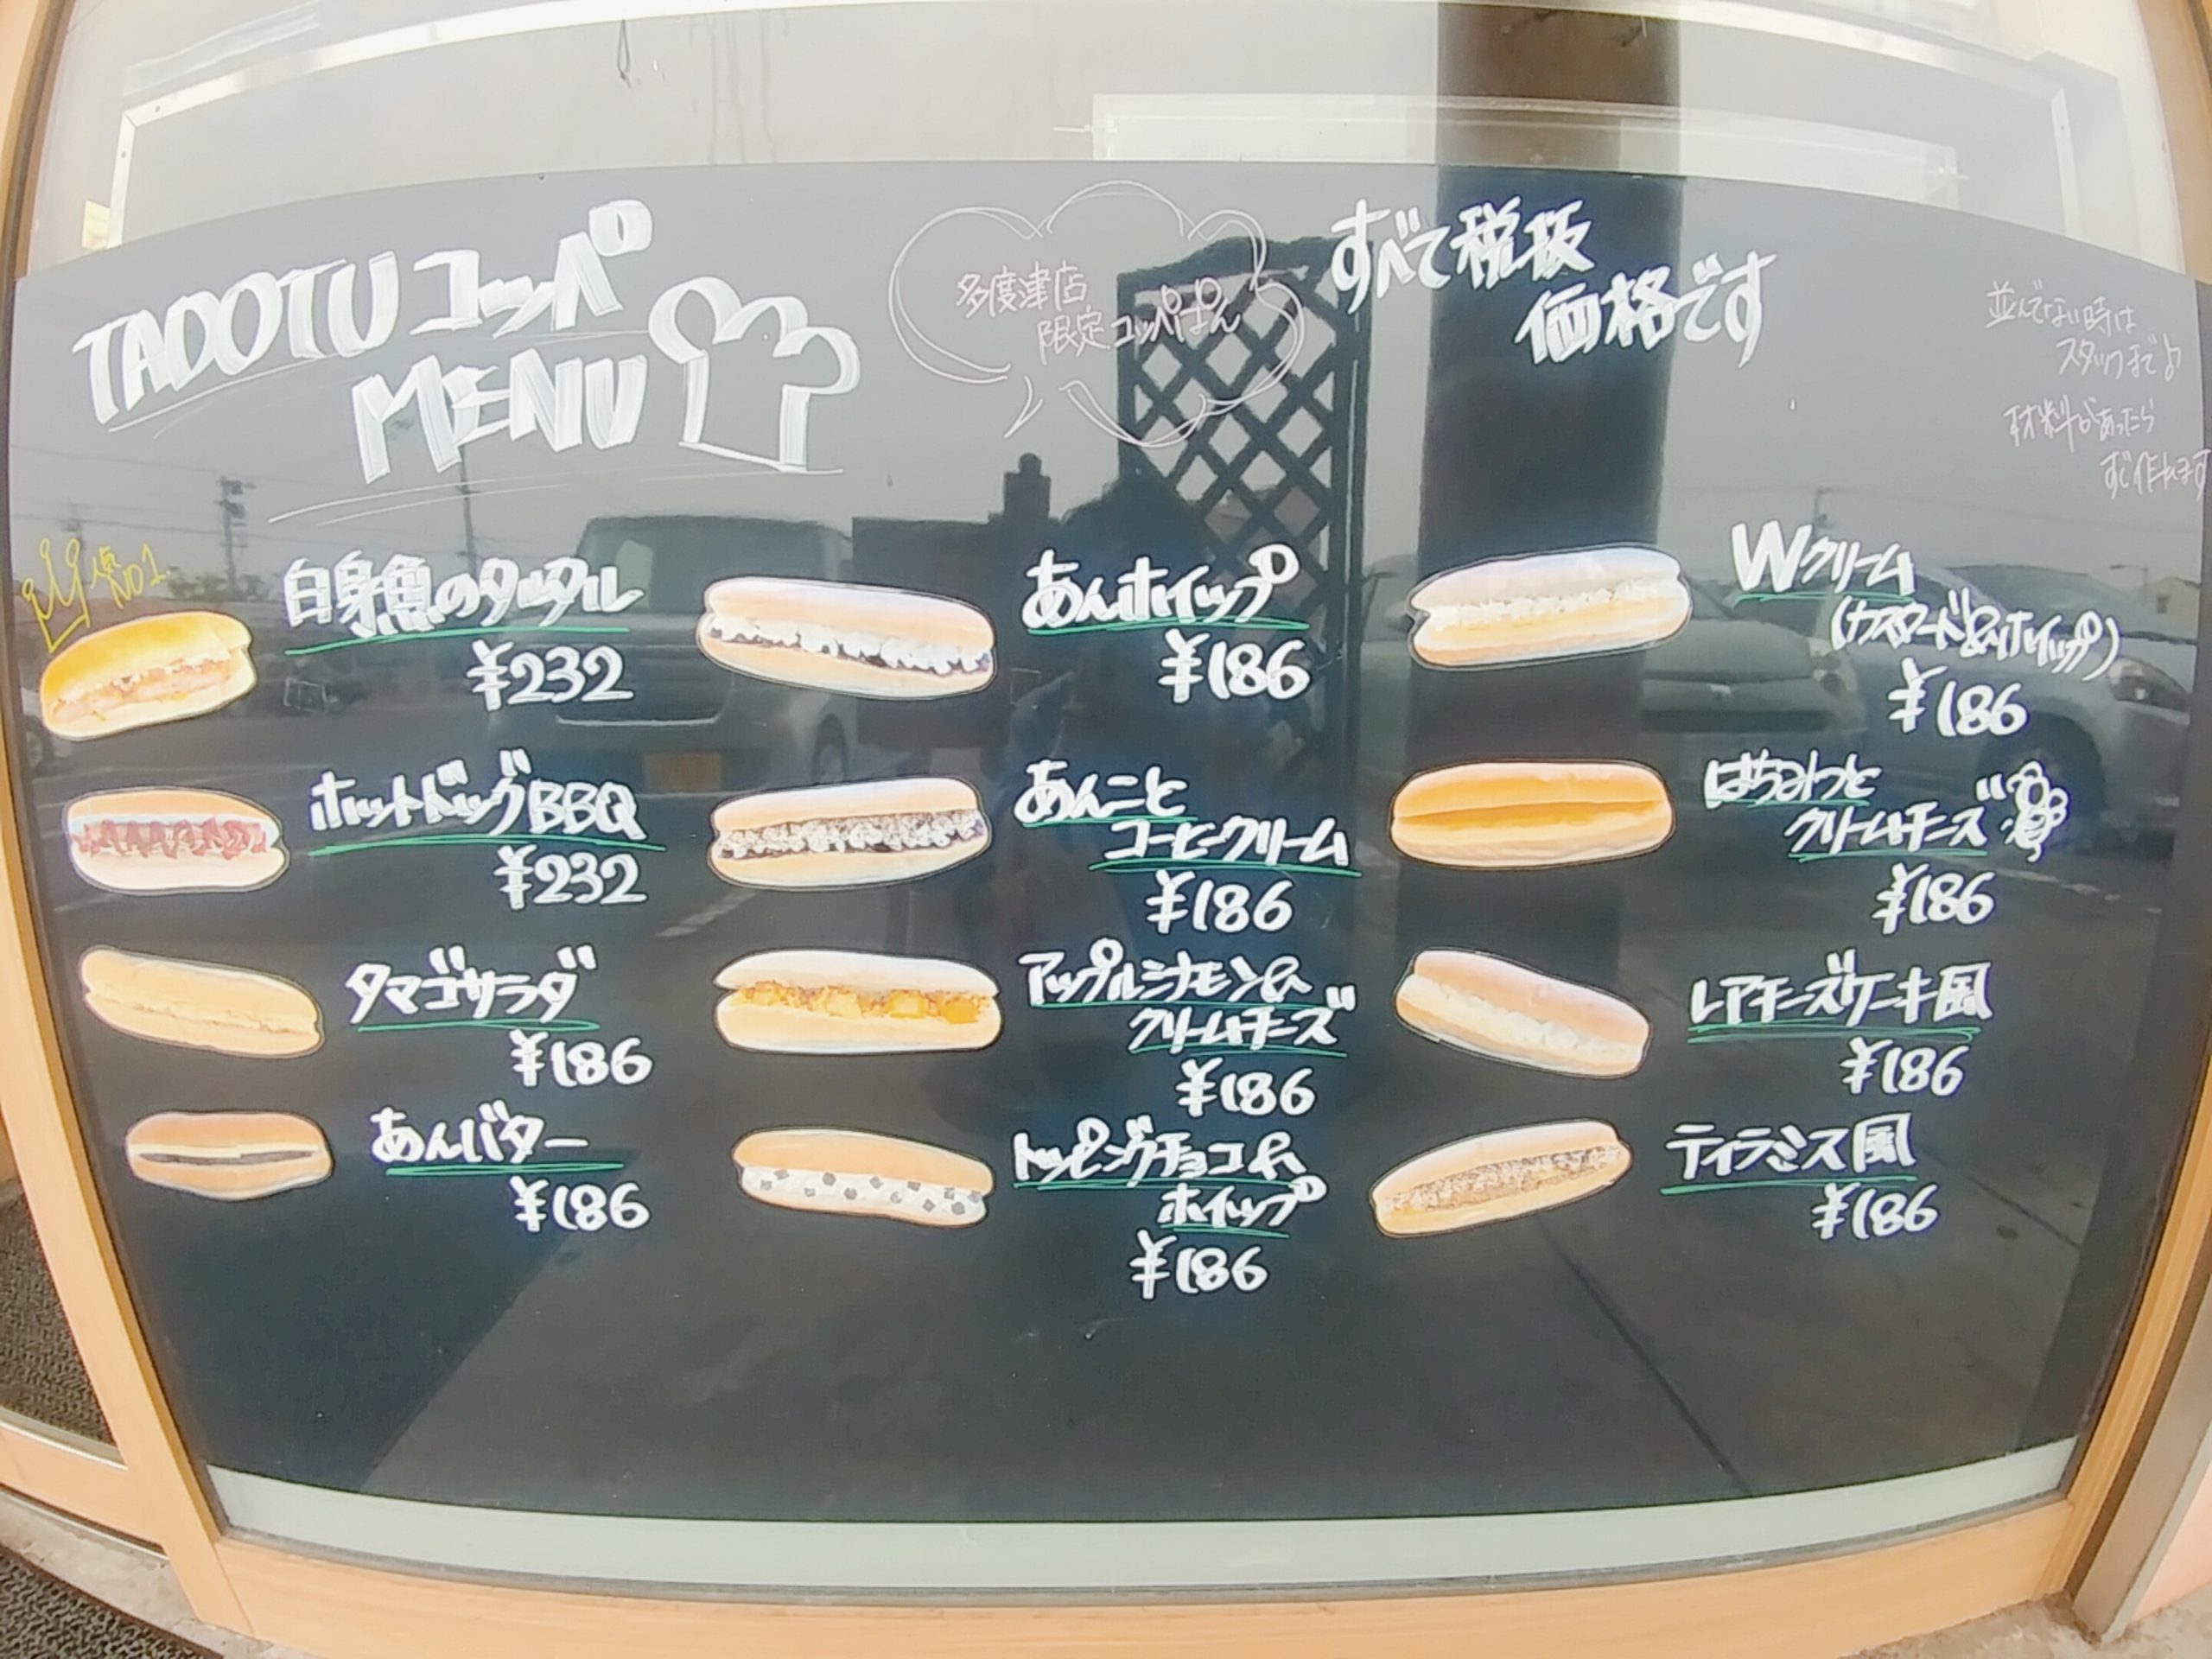 TADOTUコッペ
MENU
多度津店
限定コッペぱん
すべて税抜
価格です
並んでない時は
スタッフまで♪
材料があったら
すぐ作れます
人気NO1
白身魚のタルタル
¥232
ホットドッグBBQ
¥232
タマゴサラダ
¥186
あんバター
¥186
あんホイップ
¥186
あんこと
コーヒークリーム
¥186
アップルシナモン&
クリームチーズ
¥186
トッピングチョコ&
ホイップ
¥186
Wクリーム
(カスタード&ホイップ)
¥186
はちみつと
クリームチーズ
¥186
レアチーズケーキ風
¥186
ティラミス風
¥186